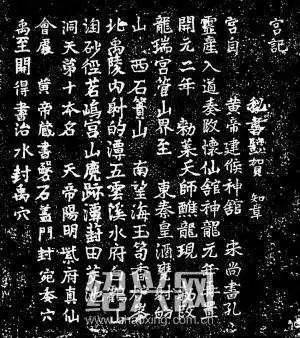 宮記
秘書監賀 知章
宮自 黃帝建候神舘 宋尚書孔
靈産入道奏改懷仙舘神龍元年再置
開元二年 勑葉天師醮龍現 勑改
龍瑞宮管山界至 東秦皇酒瓮射的
山 西石簣山 南望海玉笥香爐峯
北禹陵内射的潭五雲溪水府
淘砂徑茗塢宮山鹿跡潭葑田茭池
洞天第十本名 天帝陽明紫府真仙
會處 黃帝藏書磐石盖門封宛委穴
禹至開得書治水封禹穴
绍兴网